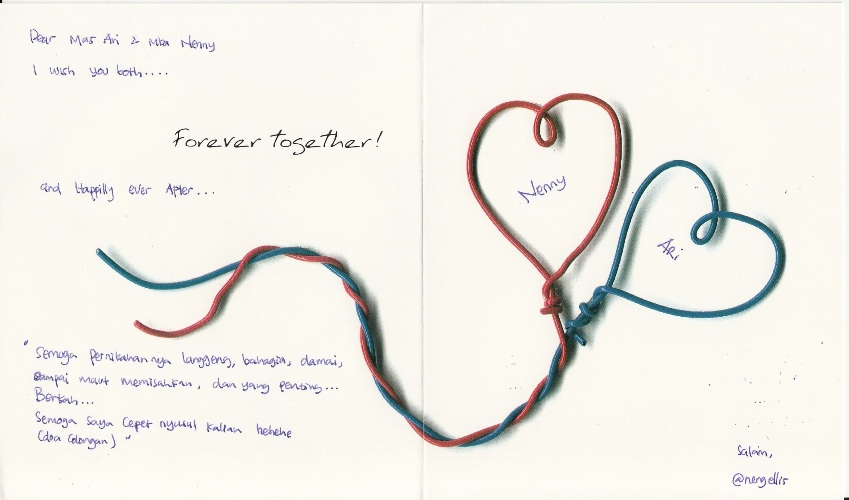 Dear Mas Ari & Mba Nenny
I wish you both....
Forever together!
and Happilly ever After...
Nenny
Ari
"Semoga Pernikahannya langgeng, bahagia, damai,
Sampai maut memisahkan, dan yang penting...
Berkah...
Semoga saya cepet nyusul kalian hehehe
(doa colongan)"
Salam,
@nengellis